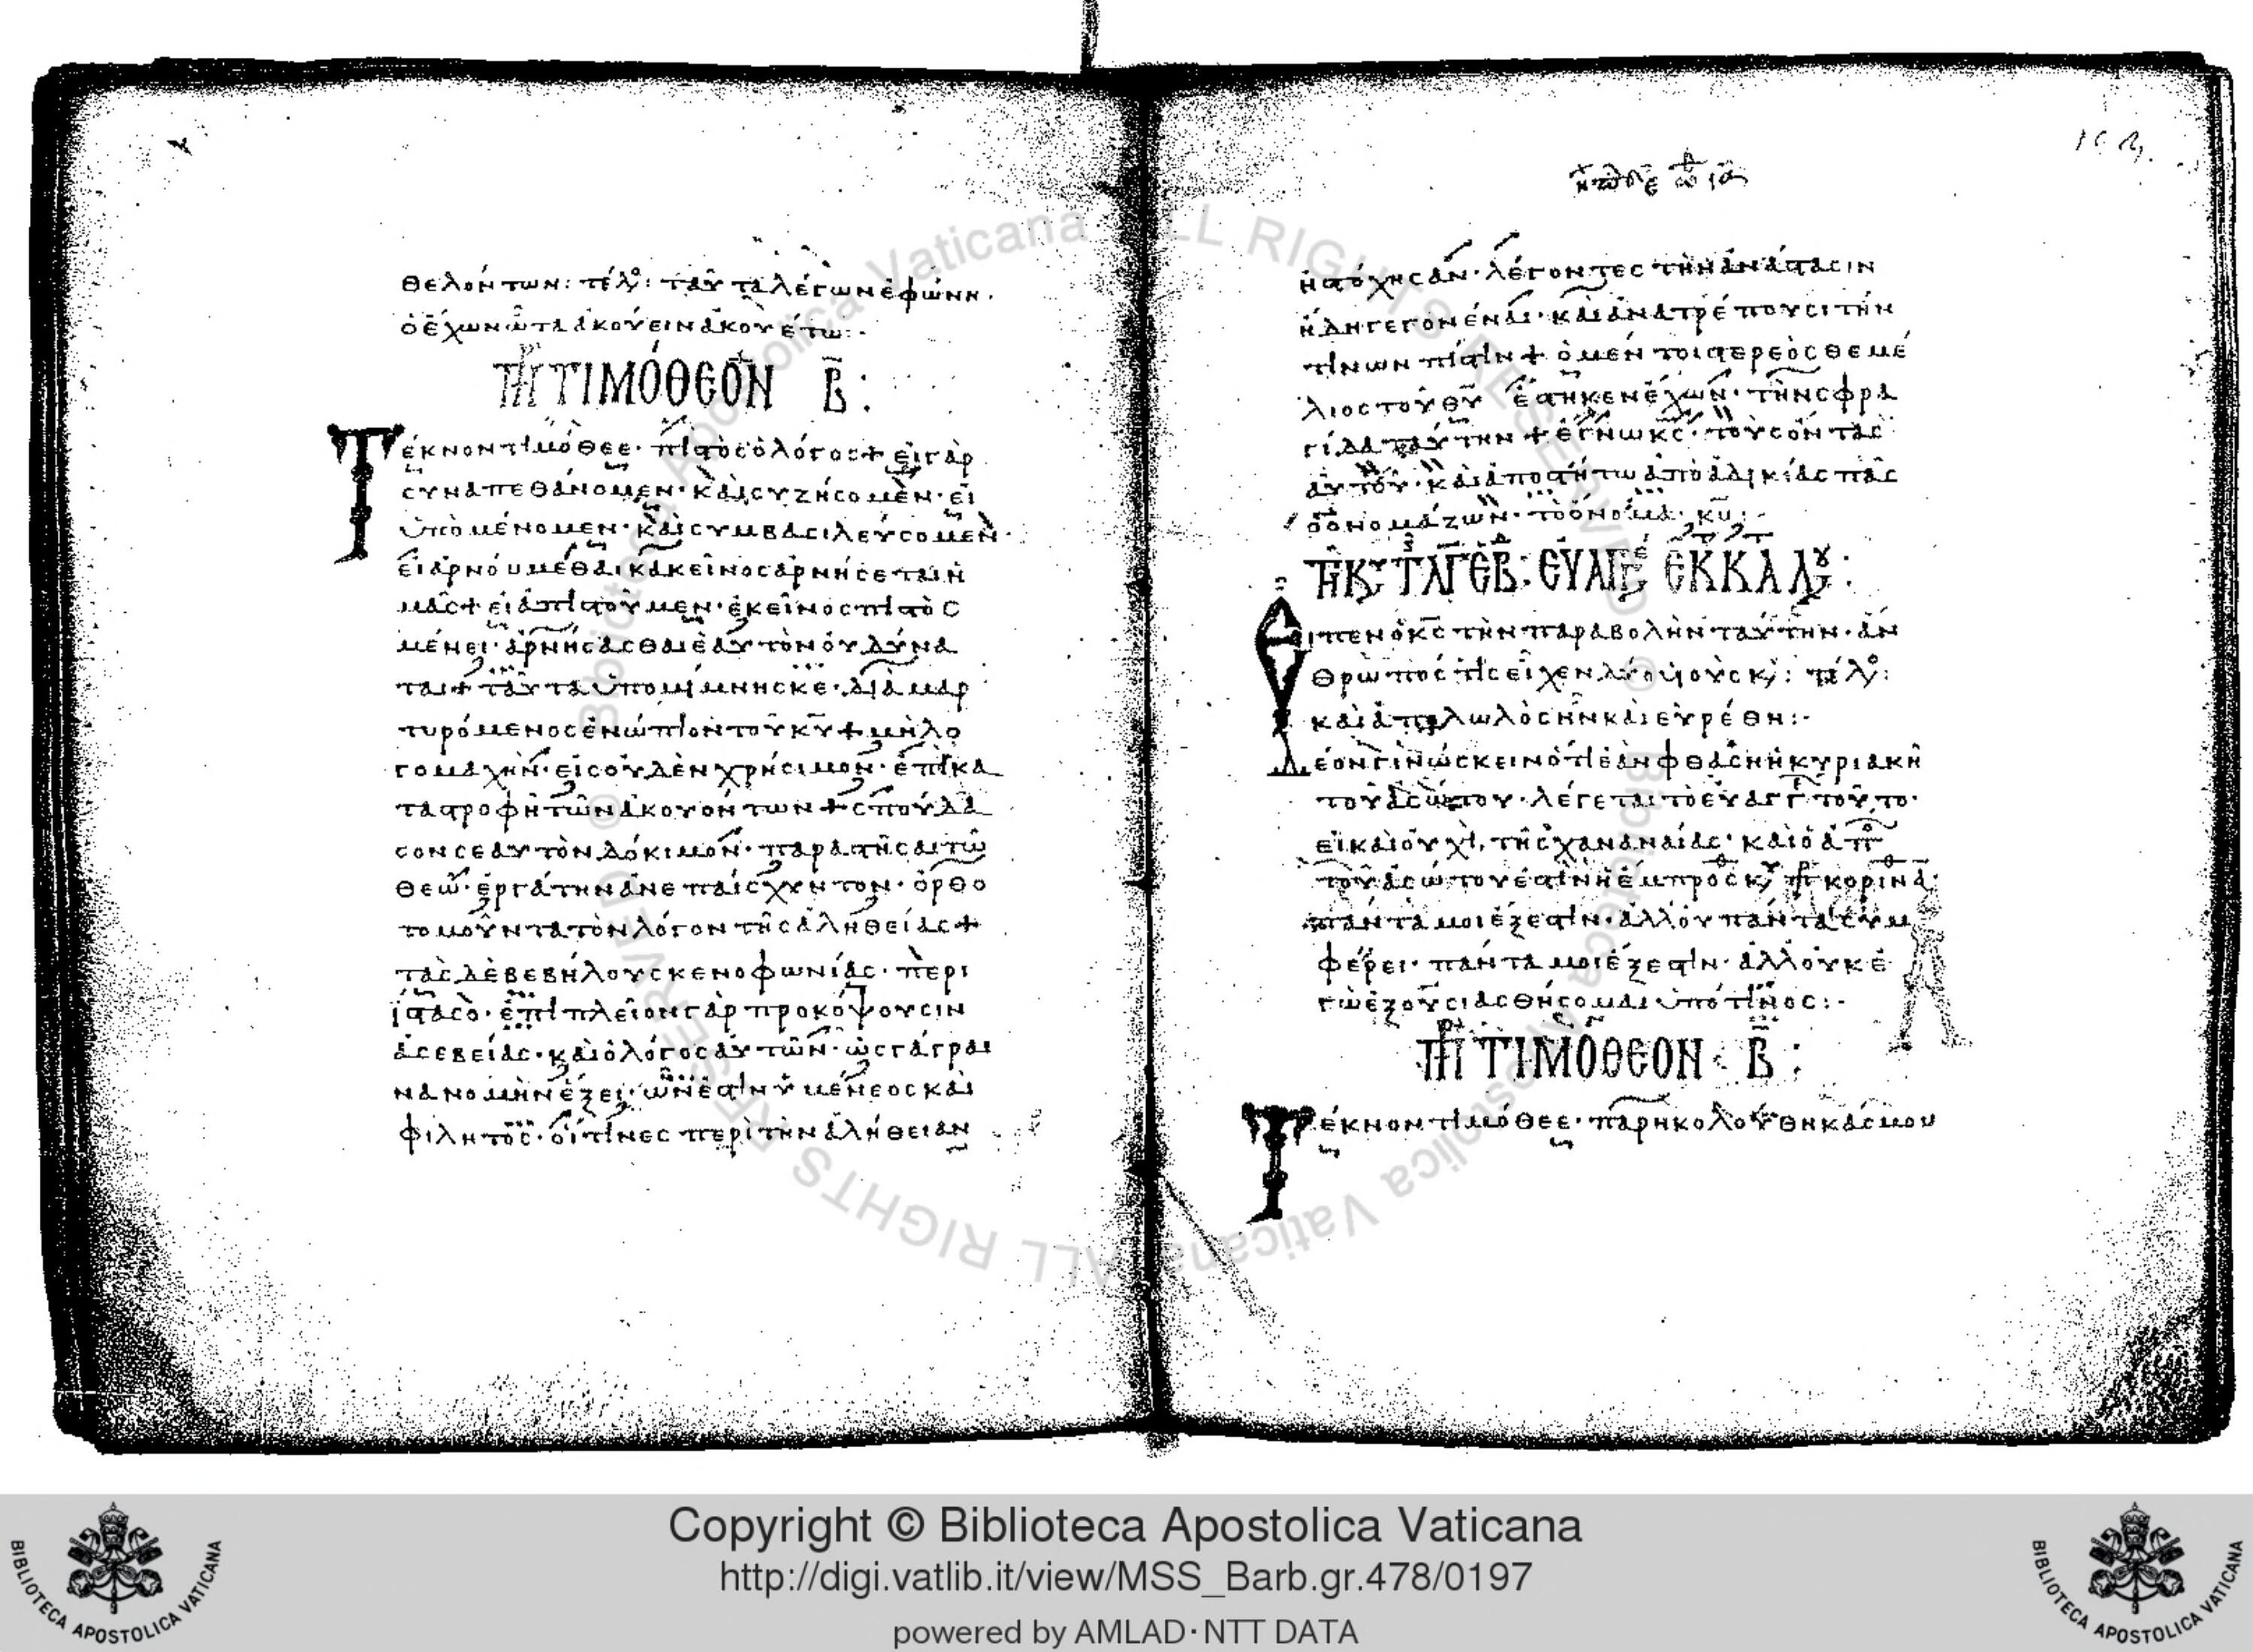 θελόντων: τέλ: ταῦτα λέγων ἐφώνη.
ὁ ἔχων ὦτα ἀκούειν ἀκουέτω:-
ΤΙΜΌΘΕΟΝ Β:
Τέκνον τιμόθεε· πιστὸς ὁ λόγος + εἰ γὰρ
συναπεθάνομεν· καὶ συζήσομεν· εἰ
ὑπομένομεν· καὶ συμβασιλεύσομεν·
εἰ ἀρνούμεθα· κἀκεῖνος ἀρνήσεται ἡ
μᾶς + εἰ ἀπιστοῦμεν· ἐκεῖνος πιστὸς
μένει· ἀρνήσασθαι ἑαυτὸν οὐ δύνα
ται + ταῦτα ὑπομίμνησκε· διαμαρ
τυρόμενος ἐνώπιον τοῦ κυ + μὴ λο
γομαχεῖν· εἰς οὐδὲν χρήσιμον· ἐπὶ κα
ταστροφῆ τῶν ἀκουόντων + σπούδα
σον σεαυτὸν δόκιμον· παραστῆσαι τῶ
θεῶ· ἐργάτην ἀνεπαίσχυντον· ὀρθο
τομοῦντα τὸν λόγον τῆς ἀληθείας +
τὰς δὲ βεβήλους κενοφωνίας· περι
ίστασο· ἐπὶ πλεῖον γὰρ προκόψουσιν
ἀσεβείας· καὶ ὁ λόγος αὐτῶν· ὡς γάγραι
να νομὴν ἕξει· ὧν ἐστὶν ὑμέναιος καὶ
φιλητός· οἵτινες περὶ τὴν ἀλήθειαν
ἠστόχησαν· λέγοντες τὴν ἀνάστασιν
ἤδη γεγονέναι· καὶ ἀνατρέπουσι τήν
τινων πίστιν + ὁ μέντοι στερεὸς θεμέ
λιος τοῦ θυ ἕστηκεν ἔχων· τὴν σφρα
γίδα ταύτην + ἔγνω κς· τοὺς ὄντας
αὐτοῦ· καὶ ἀποστήτω ἀπὸ ἀδικίας πᾶς
ὁ ὀνομάζων· τὸ ὄνομα κυ:-
εἶπεν ὁ κς τὴν παραβολὴν ταύτην· ἄν
θρωπός τις εἶχεν δύο υἱοὺς κ: τέλ:
καὶ ἀπολωλὸς ἦν καὶ εὑρέθη:-
Δέον γινώσκειν ὅτι ἐὰν φθάση ἡ κυριακὴ
τοῦ ἀσώτου· λέγεται τὸ εὐαγγ τοῦτο·
εἰ καὶ οὐχὶ, τῆς χαναναίας· καὶ ὁ ἀπ
τοῦ ἀσώτου
πάντα μοι ἔξεστιν· ἀλλ' οὐ πάντα συμ
φέρει· πάντα μοι ἔξεστιν· ἀλλ' οὐκ ἐ
γὼ ἐξουσιασθήσομαι ὑπό τινος:-
ΤΙΜΌΘΕΟΝ Β:
Τέκνον τιμόθεε· παρηκολούθηκάς μου
Copyright © Biblioteca Apostolica Vaticana
http://digi.vatlib.it/view/MSS_Barb.gr.478/0197
powered by AMLAD·NTT DATA
BIBLIOTECA APOSTOLICA VATICANA
BIBLIOTECA APOSTOLICA VATICANA